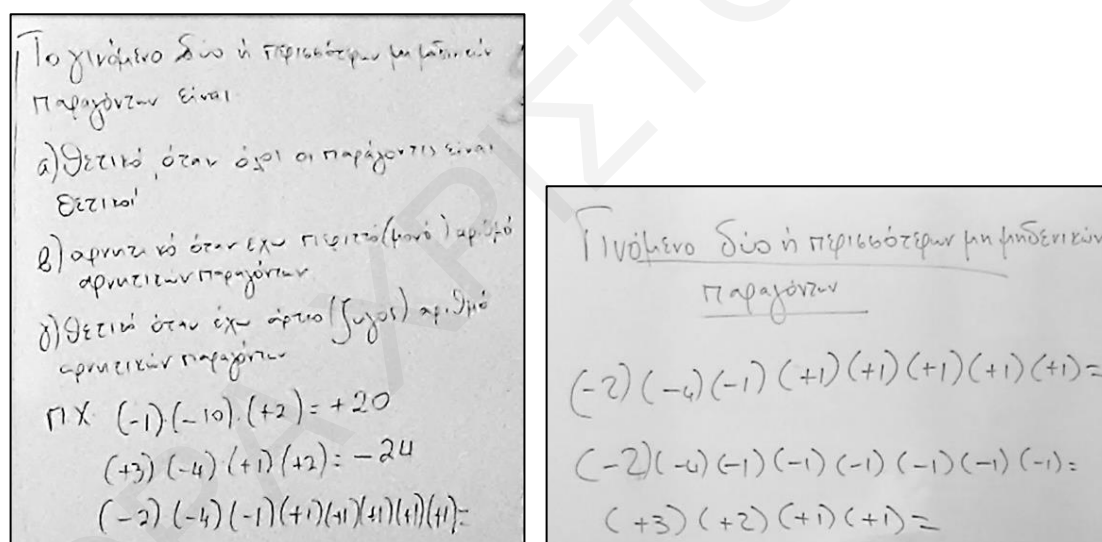 Το γινόμενο δύο ή περισσότερων μη μηδενικών
παραγόντων είναι
α) θετικό, όταν όλοι οι παράγοντες είναι
θετικοί
β) αρνητικό όταν έχω περιττό (μονό) αριθμό
αρνητικών παραγόντων
γ) θετικό όταν έχω άρτιο (ζυγός) αριθμό
αρνητικών παραγόντων
ΠΧ (-1)·(-10)·(+2) = +20
(+3)·(-4)·(+1)(+2) = -24
(-2)·(-4)(-1)(+1)(+1)(+1)(+1)(+1)=
Γινόμενο δύο ή περισσότερων μη μηδενικών
παραγόντων
(-2)(-4)(-1)(+1)(+1)(+1)(+1)(+1)=
(-2)(-4)(-1)(-1)(-1)(-1)(-1)(-1)=
(+3)(+2)(+1)(+1)=